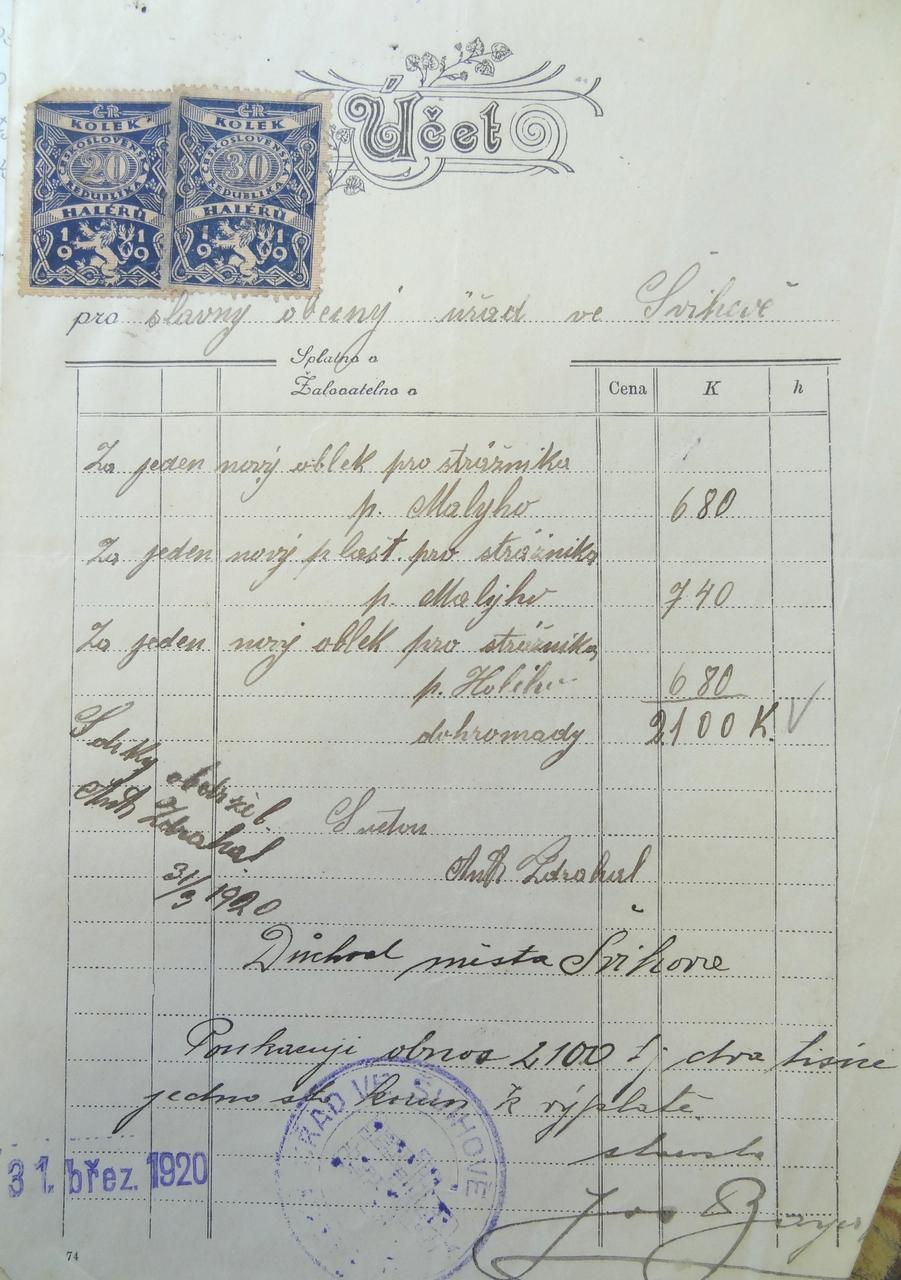 Účet
ČR
KOLEK
ČESKOSLOVENSKÁ
20
REPUBLIKA
HALÉŘŮ
1919
ČR
KOLEK
ČESKOSLOVENSKÁ
30
REPUBLIKA
HALÉŘŮ
1919
pro slavný obecný úřad ve Švihově
Splatno a
Žalovatelno a
Cena K h
Za jeden nový oblek pro strážnika
p. Malyho 680
Za jeden nový plašt pro strážnika
p. Malyho 740
Za jeden nový oblek pro strážnika
p. Holého 680
dohromady 2100 K.
S díky obdržel.
Ant Zdrahal
31/3 1920
S úctou
Ant Zdrahal
Důchod města Švihova
Poukazuji obnos 2100 tj dva tisíce
jedno sto korun k výplatě.
starosta
Jos
ÚŘAD VE ŠVIHOVĚ
31. břez. 1920
74